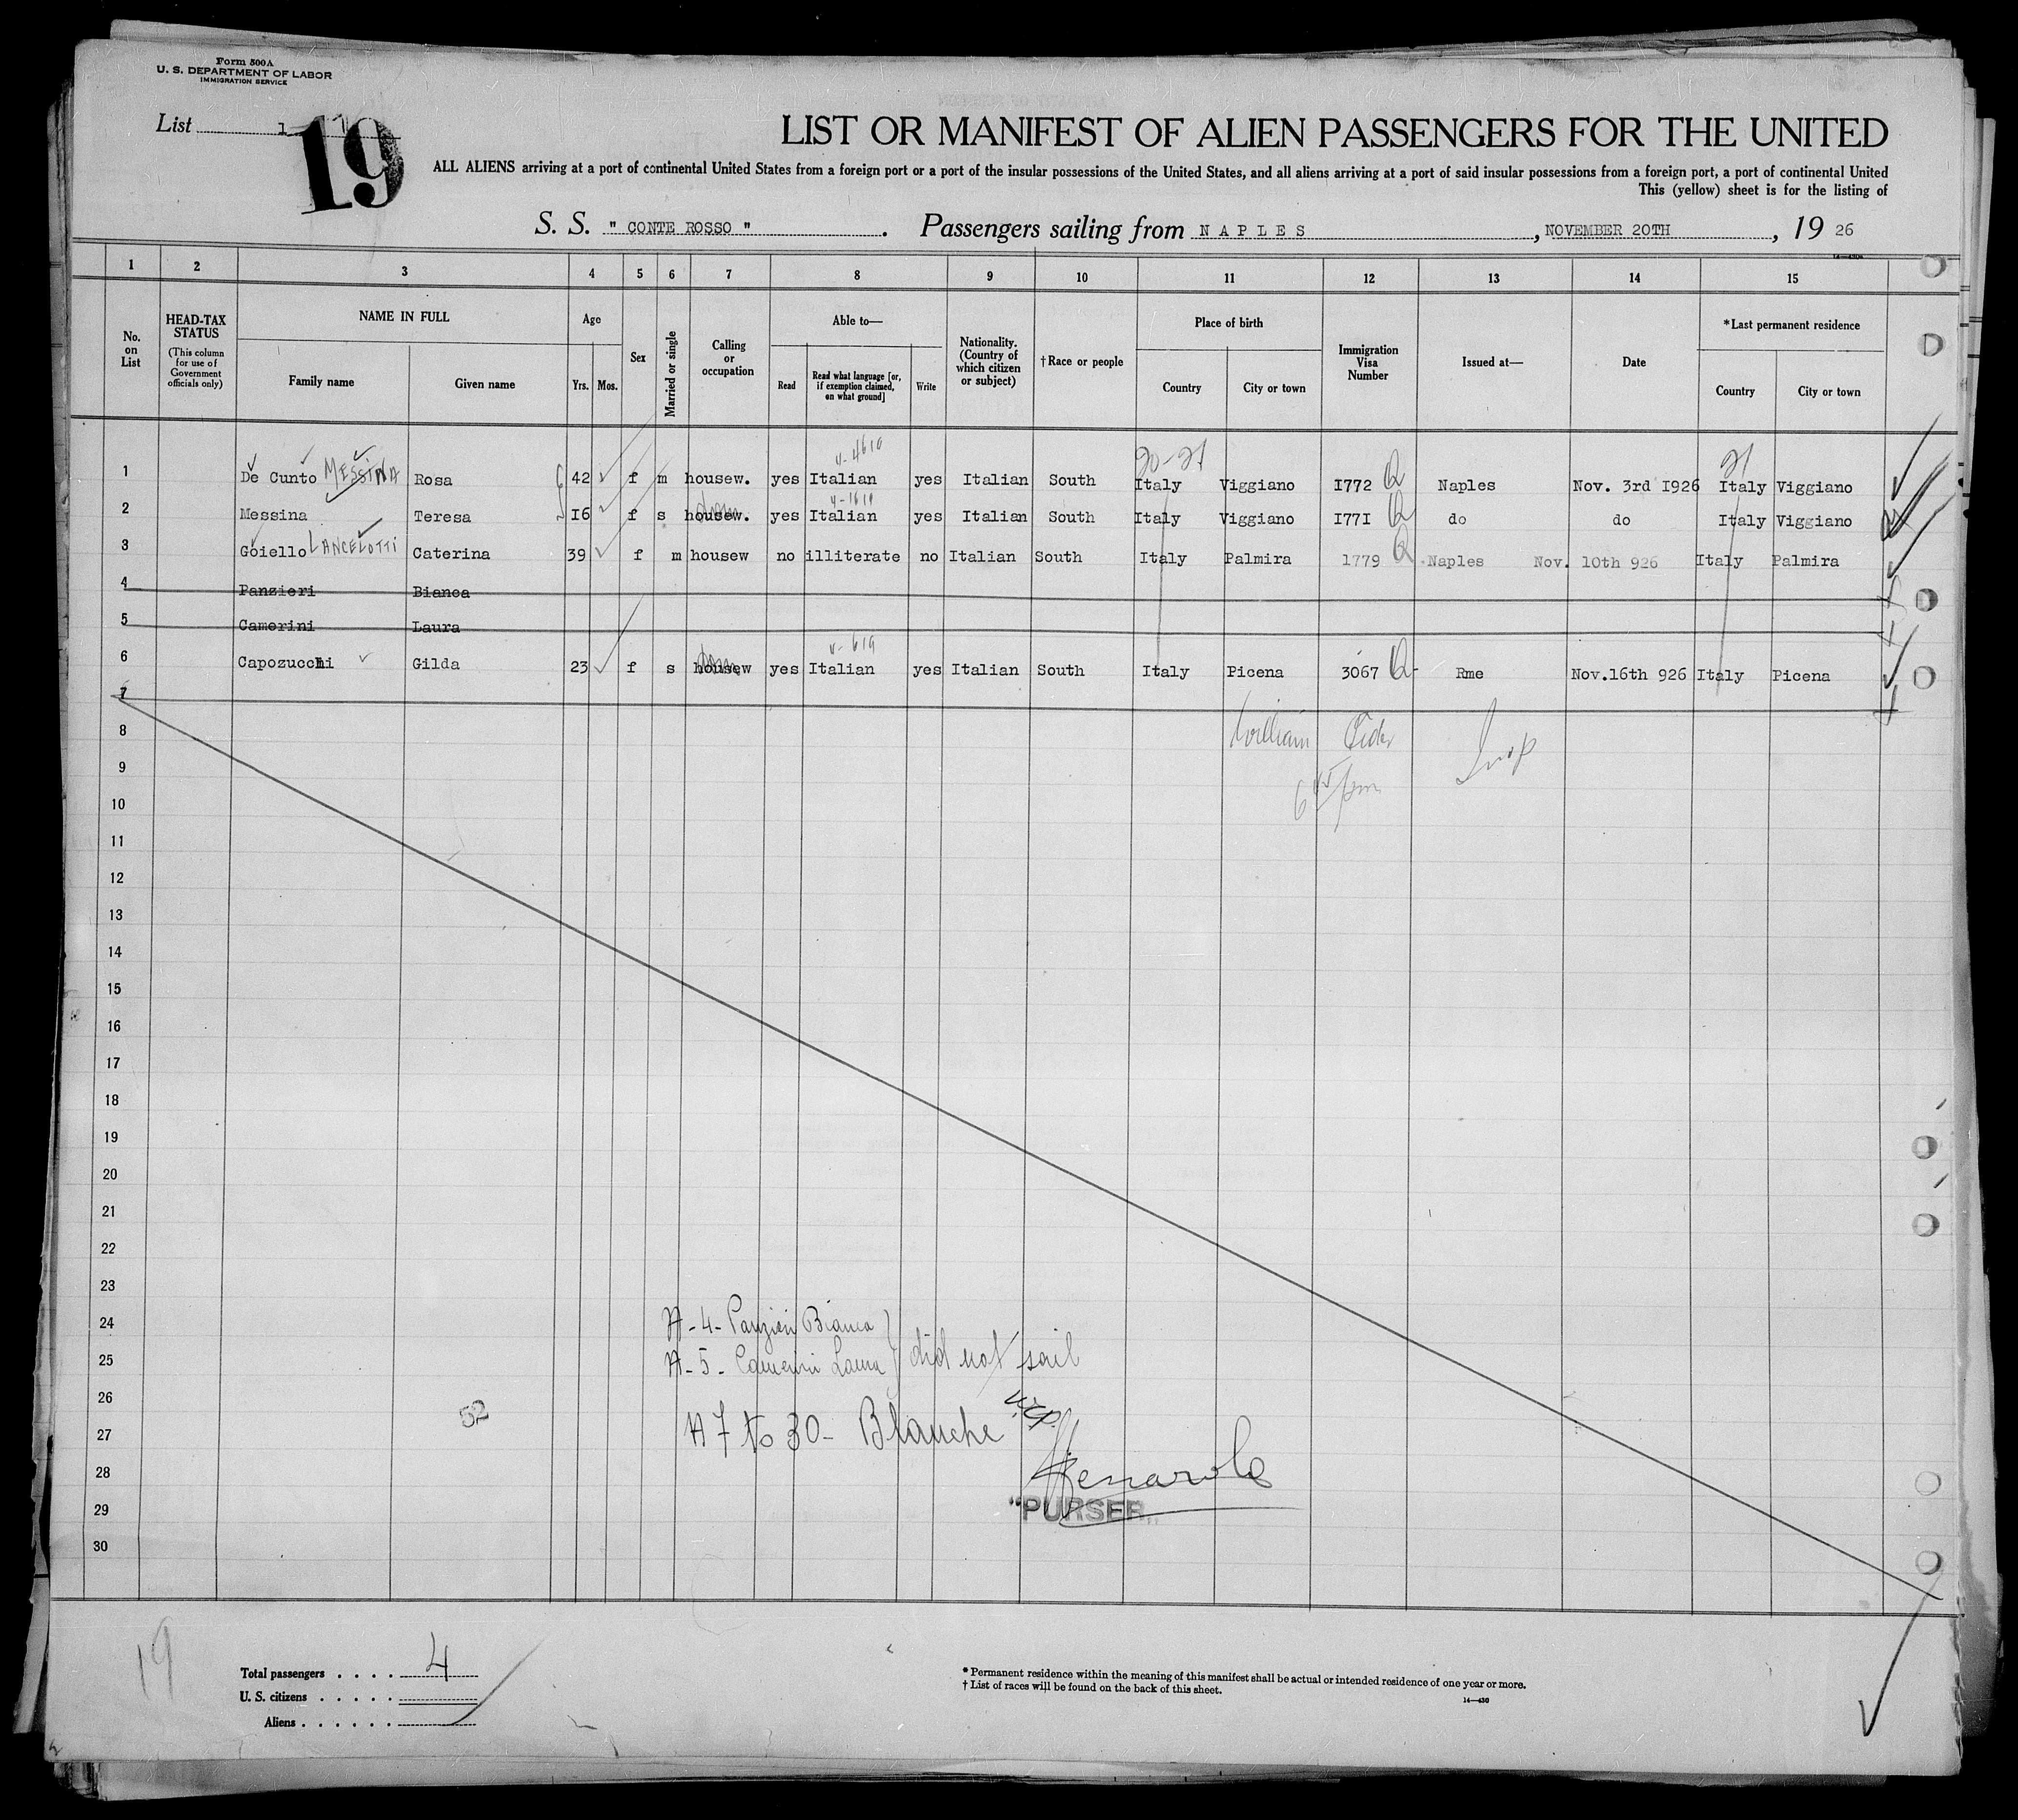 Form 500A
U. S. DEPARTMENT OF LABOR
IMMIGRATION SERVICE
List 1
19
LIST OR MANIFEST OF ALIEN PASSENGERS FOR THE UNITED
ALL ALIENS arriving at a port of continental United States from a foreign port or a port of the insular possessions of the United States, and all aliens arriving at a port of said insular possessions from a foreign port, a port of continental United
This (yellow) sheet is for the listing of
S. S. " CONTE ROSSO " . Passengers sailing from N A P L E S , NOVEMBER 20TH , 19 26
14—430A
1 2 3 4 5 6 7 8 9 10 11 12 13 14 15
No. on List
HEAD-TAX STATUS (This column for use of Government officials only)
NAME IN FULL
Family name Given name
Age
Yrs. Mos.
Sex
Married or single
Calling or occupation
Able to—
Read Read what language [or, if exemption claimed, on what ground] Write
Nationality. (Country of which citizen or subject)
†Race or people
Place of birth
Country City or town
Immigration Visa Number
Issued at—
Date
*Last permanent residence
Country City or town
v-4610 20-21 21
1 De Cunto MESSINA Rosa 42 f m housew. yes Italian yes Italian South Italy Viggiano I772 Q Naples Nov. 3rd I926 Italy Viggiano
4-1619
2 Messina Teresa I6 f s housew. yes Italian yes Italian South Italy Viggiano I77I Q do do Italy Viggiano
3 Goiello LANCELOTTI Caterina 39 f m housew no illiterate no Italian South Italy Palmira 1779 Q Naples Nov. 10th 926 Italy Palmira
4 Panzieri Bianca
5 Camerini Laura
v-619
6 Capozucchi Gilda 23 f s housew yes Italian yes Italian South Italy Picena 3067 Q Rme Nov.16th 926 Italy Picena
7
8 William Insp
9
10 6 45 pm
11
12
13
14
15
16
17
18
19
20
21
22
23
24 A-4-Panzieri Bianca
25 A-5-Camerini Laura } did not sail
26
27 52 A 7 to 30- Blanche
28
29 "PURSER"
30
19
Total passengers . . . . 4
U. S. citizens . . . . .
Aliens . . . . . .
* Permanent residence within the meaning of this manifest shall be actual or intended residence of one year or more.
† List of races will be found on the back of this sheet.
14—430